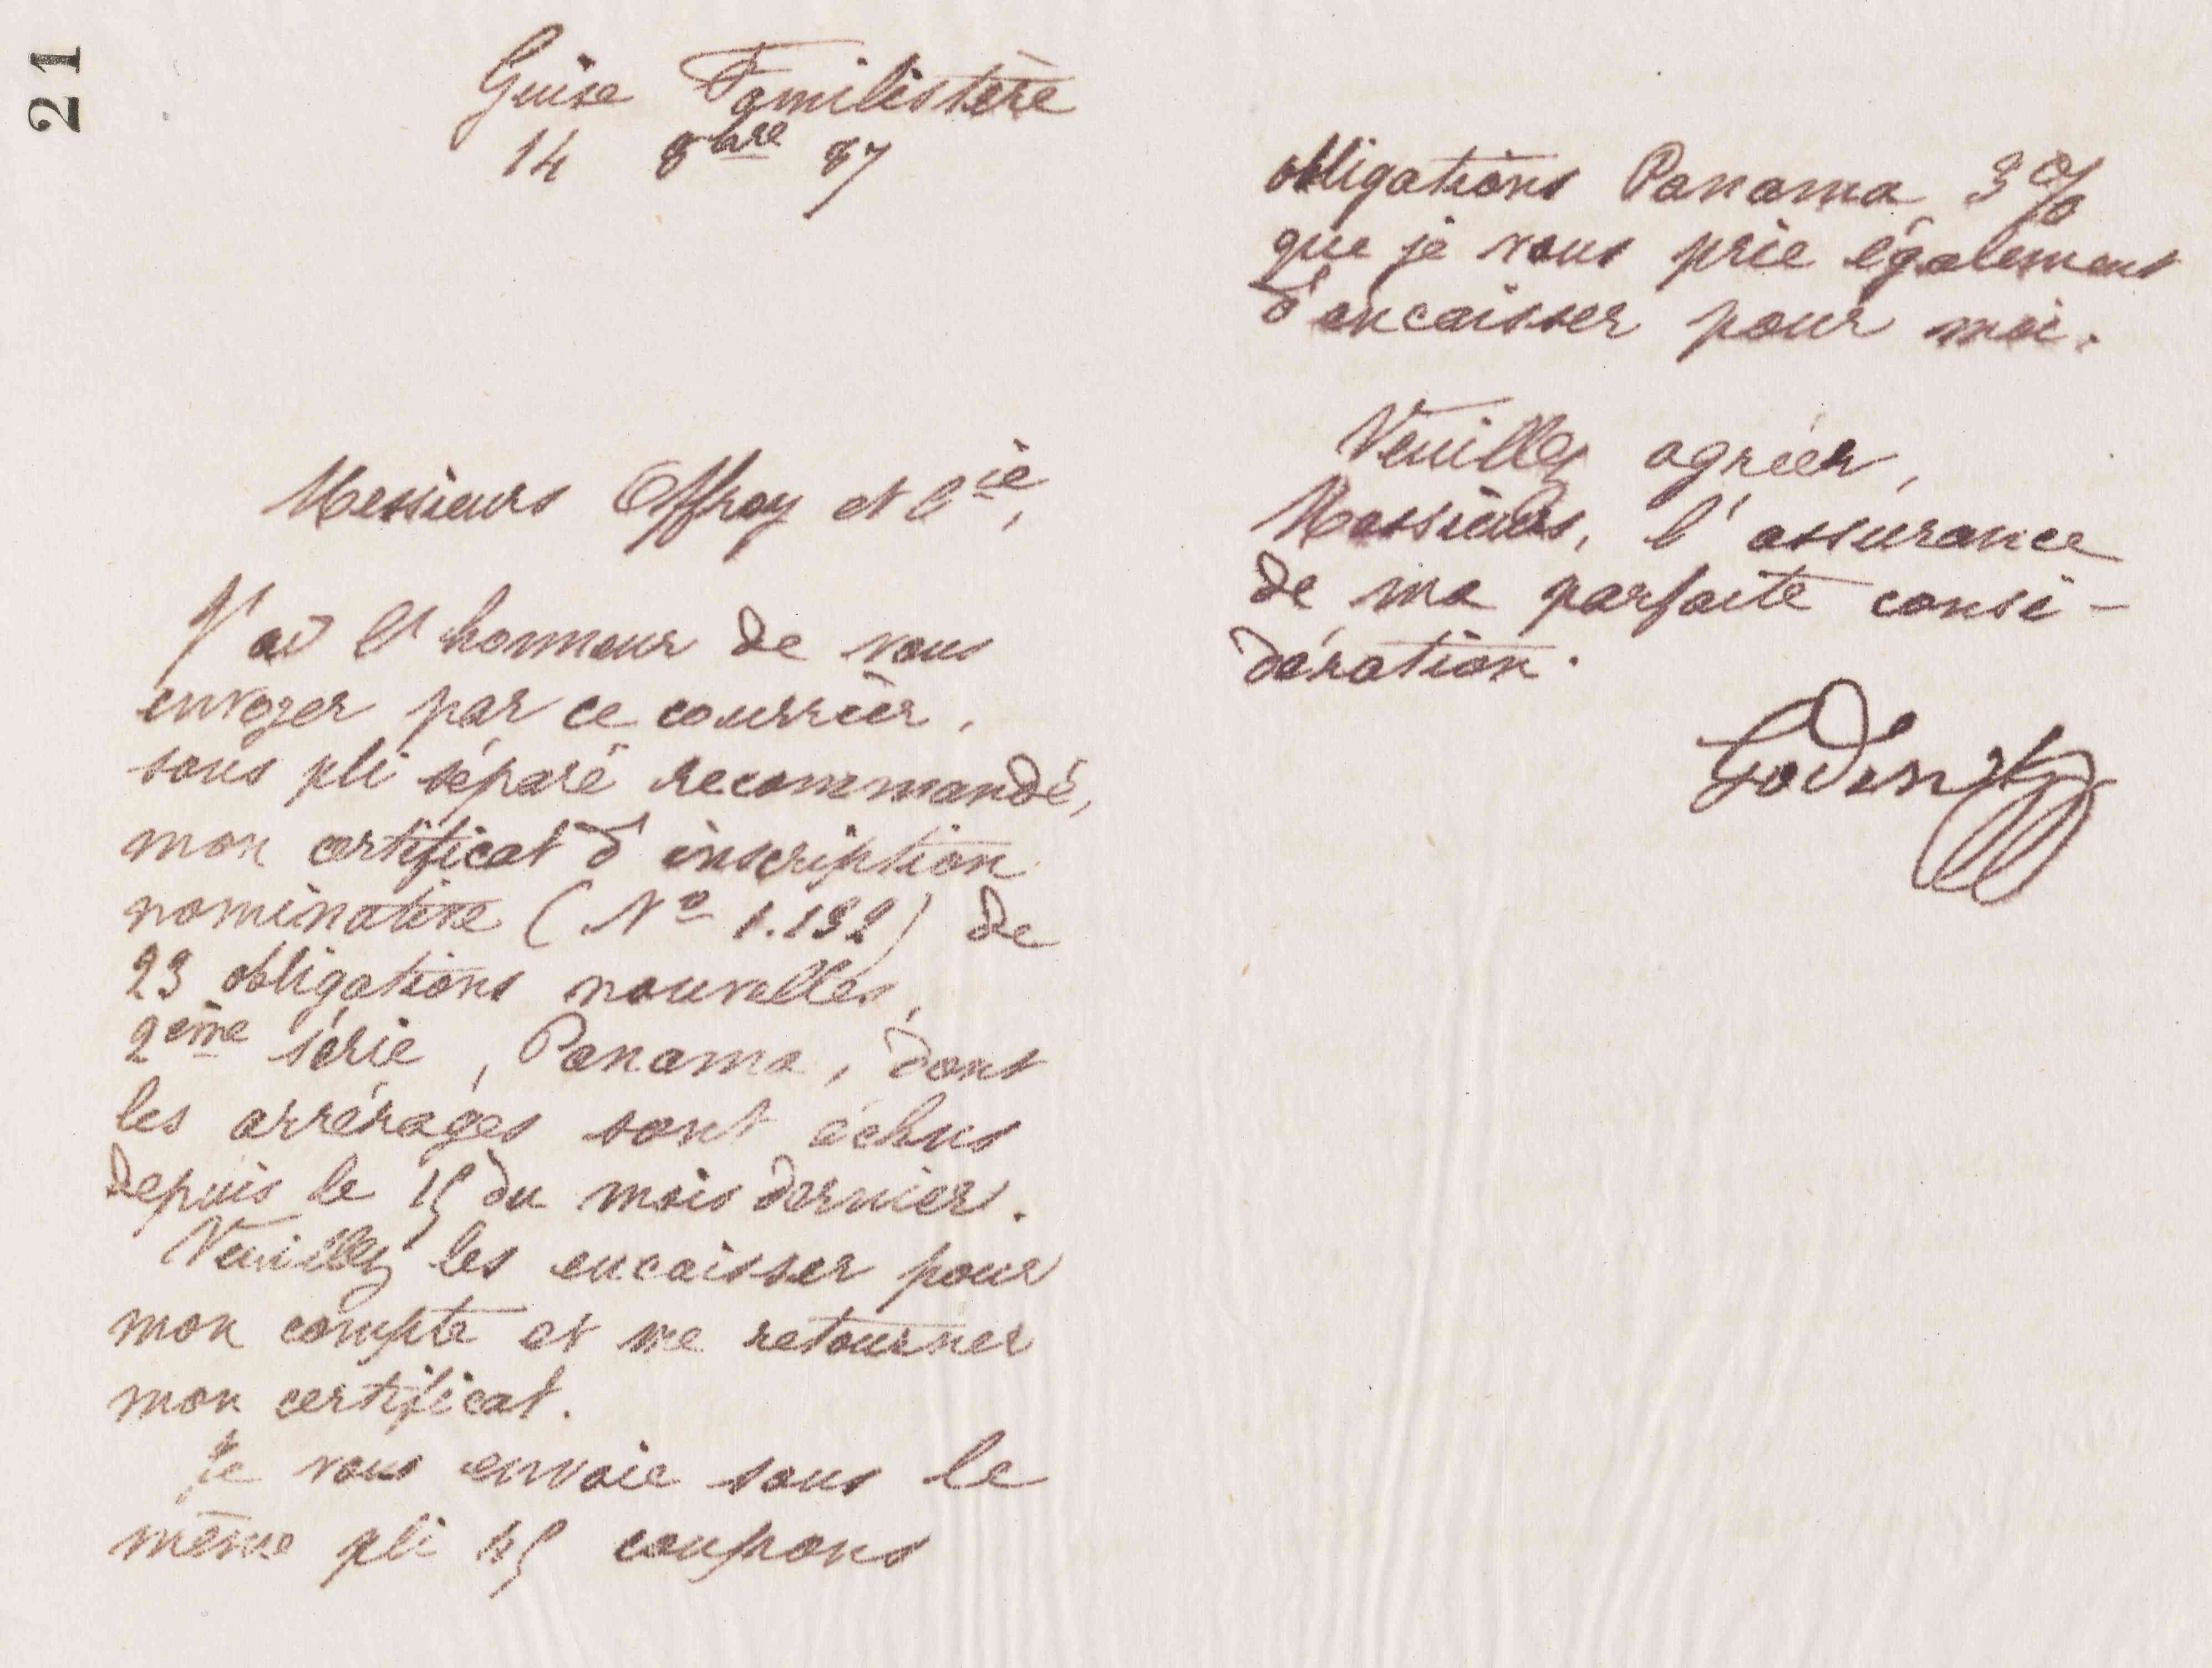 21
Guise Familistère
14 8bre 87
Messieurs Offroy et Cie,
J'ai l'honneur de vous
envoyer par ce courrier,
sous pli séparé recommandé,
mon certificat d'inscription
nominative (No 1.192) de
23 obligations nouvelles,
2ème série, Panama, dont
les arrérages sont échus
depuis le 15 du mois dernier.
Veuillez les encaisser pour
mon compte et me retourner
mon certificat.
Je vous envoie sous le
même pli 45 coupons
obligations Panama 3%
que je vous prie également
d'encaisser pour moi.
Veuillez agréer,
Messieurs, l'assurance
de ma parfaite consi-
dération.
Godin